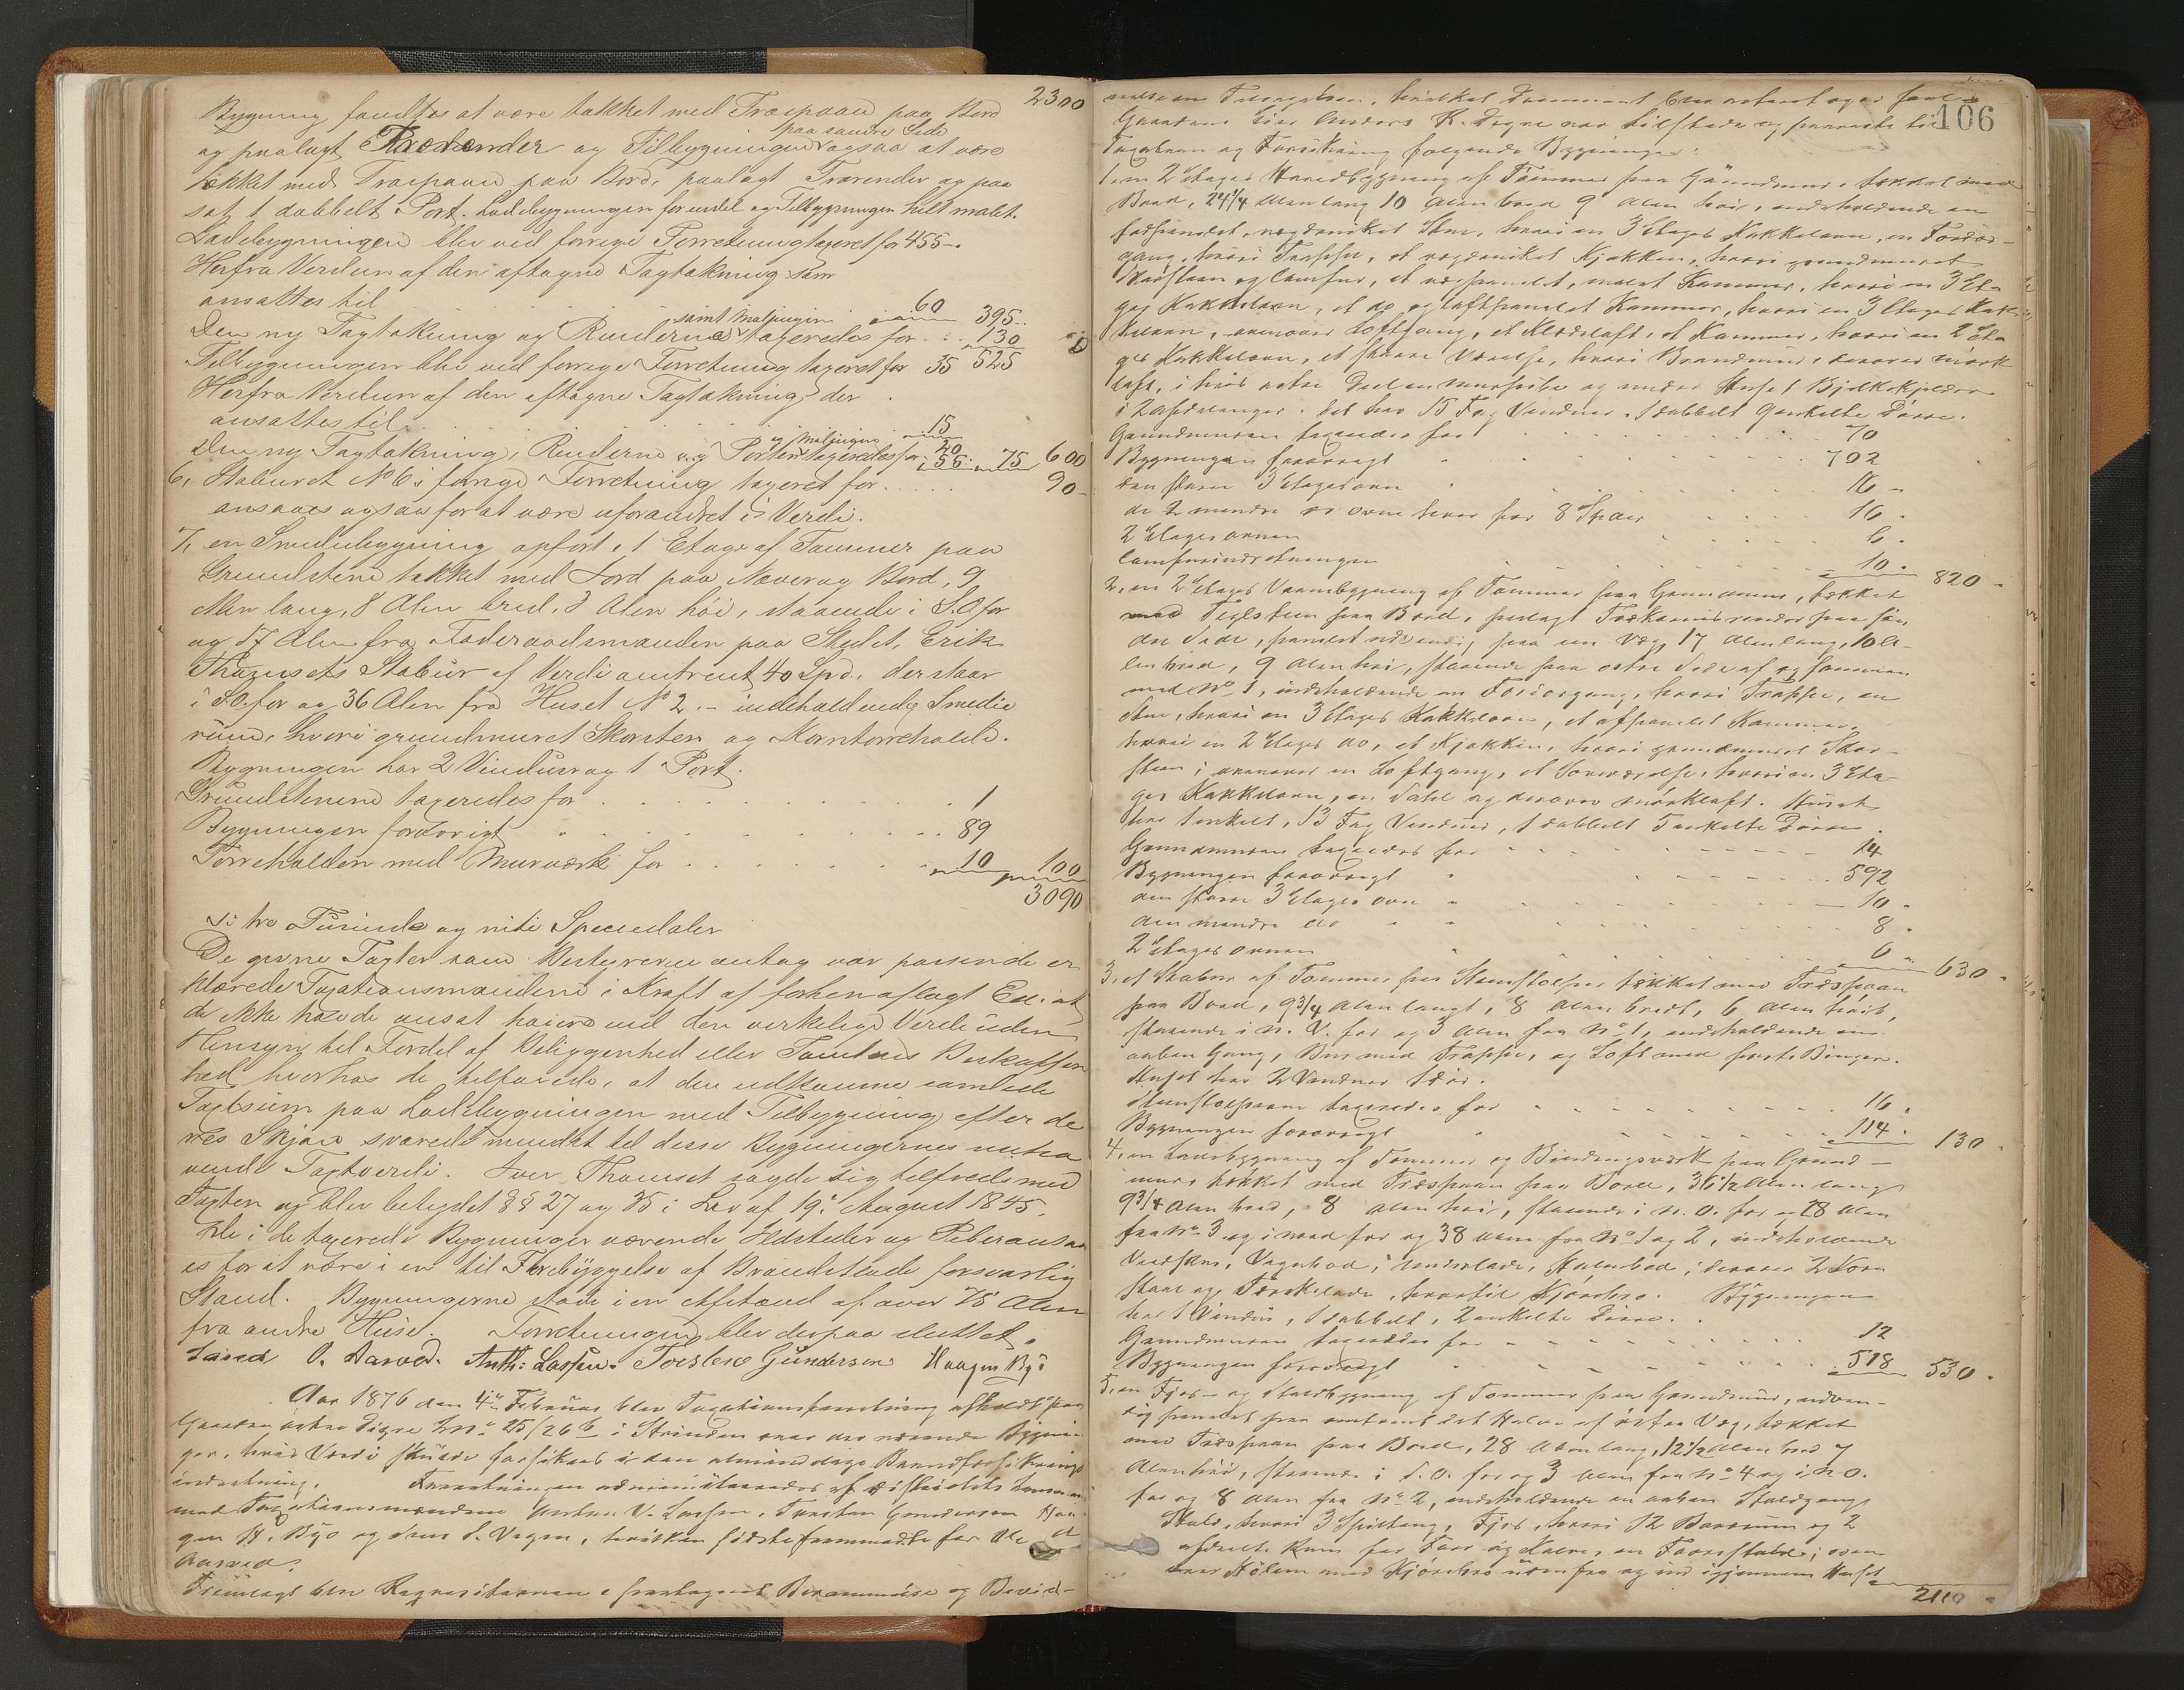 2300
Bygning fandtes at være tækket med Træspaan paa Bord
paa søndre Side
og paalagt Trærender og Tilbygningen ogsaa at være
tækket med Træspaan paa Bord, paalagt Trærender og paa
sat 1 dobbelt Port. Ladebygningen forendel og Tilbygningen helt malet.
Ladebygningen blev ved forrige Forretning taxeret for 455 -.
Herfra Verdien af den aftagne Tagtækning som
ansattes til 60 395..
samt Malingen
Den ny Tagtækning og Renderne taxeredes for . . . 130
525
Tilbygningen blev ved forrige Forretning taxeret for 35
Herfra Verdien af den aftagne Tagtækning der
ansattes til . . . 15
20
og Malingen
Den ny Tagtækning, Renderne og Porten taxeredes for . 55. 75 600
6, Staburet No 6 i forrige Forretning taxeret for . . . . 90 -
ansaaes ogsaa for at være uforandret i Verdi.
7, en Smedebygning opført i 1 Etage af Tømmer paa
Grundstene tækket med Jord paa Næver og Bord, 9
Alen lang, 8 Alen bred, 3 Alen høi, staaende i S.O. for
og 17 Alen fra Føderaadsmanden paa Stedet, Erik
Thamsets Stabur af Verdi omtrent 40 Spd., der staar
i S.O. for og 36 Alen fra Huset No 2. - indeholdende Smedie
rum, hvori grundmuret Skorsten og Korntørrehølde.
Bygningen har 2 Vinduer og 1 Port.
Grundstenene taxeredes for . . . . . . . . . 1
Bygningen forøvrigt " . . . . . . . . 89
Tørreholden med Murværk for . . . . . . . 10 100
3090
S: tre Tusinde og niti Speciedaler
De givne Taxter som Bestyreren antog var passende er
klærede Taxationsmændene i Kraft af forhen aflagt Ed: at
de ikke havde ansat høiere end den virkelige Verdi uden
Hensyn til Fordel af Beliggenhed eller Tomtens Beskaffen
hed hvorhos de tilføiede, at den udkomne samlede
Taxtsum paa Ladebygningen med Tilbygning efter de
res Skjøn svarede mindst til disse Bygningernes nuvæ
rende Taxtverdi. Iver Thamset sagde sig tilfreds med
Taxten og blev betydet §§ 27 og 35 i Lov af 19: August 1845.
De i de taxerede Bygninger værende Ildsteder og Piber ansaa
es for at være i en til Forebyggelse af Brandskade forsvarlig
Stand. Bygningerne staa i en Afstand af over 75 Alen
fra andre Huse. Forretningen blev derpaa sluttet.
O. Aasved. Anth: Lassen. Torsten Gundersen Haagen Byø
Aar 1876 den 4de Februar blev Taxationsforretning afholdt paa
Gaarden østre Digre Lno 25/26 b i Strinden over der værende Bygnin-
ger, hvis Verdi skulde forsikres i den almindelige Brandforsikrings
indretning. Forretningen administreredes af Distriktets Lensmand
med Taxationsmændene Anton V. Lassen, Torsten Gundersen Haa
gen H. Byø og Jens S. Vagen, hvilken sidste fremmødte for Ole
Aasved.
Fremlagt blev Requisitionen i paategnet Berammelse og Bevid-
106
nelse om Tilsigelsen, hvilket Document blev noteret og er saal.
Gaardens Eier Anders K. Digre var tilstede og fremviste til
Taxation og Forsikring følgende Bygninger:
1, en 2 Etages Hovedbygning af Tømmer paa Grundmur, tækket med
Bord, 24 1/4 Alen lang 10 Alen bred 9 Alen høi, indeholdende en
Stue, hvori en 3 Etages Kakkelovn, en Fordør-
gang, hvori Trappe, et Kjøkken, hvori grundmuret
Skorsten og Comfur, et malet Kammer, hvori en 3 Eta-
ges Kakkelovn, et do og loftpanelet Kammer, hvori en 3 Etages Kak-
kelovn, ovenover Loftgang, et Klædeloft, et Kammer, hvori en 2 Eta
ges Kakkelovn, et større Værelse, hvori Brandmur, derover mørk
loft, i hvis østre Deel en murpibe og under Huset Bjelkekjelder
i 2 Afdelinger. Det har 15 Fag Vinduer, 1 dobbelt 9 enkelte Døre.
Grundmuren taxeredes for . . . . . 70
Bygningen forøvrigt " . . . . . 702
den større 3 Etagesovn " . . . . 16 -
de 2 mindre do ovne hver for 8 Spdr . . . 16 .
2 Etages ovnen . . . . 6 .
Comfurindretningen . . . . 10 . 820 -
2, en 2 Etages Vaanebygning af Tømmer paa Grundmur, tækket
med Teglsteen paa Bord, paalagt Trækarnisrender paa søn
dre Side, panelet udvendig paa en Væg, 17 Alen lang, 10 A-
len bred, 9 Alen høi, staaende paa østre Side af og sammen
med No 1, indeholdende en Fordørgang, hvori Trappe, en
Stue, hvori en 3 Etages Kakkelovn, et afpanelet Kammer,
hvori en 2 Etages do, et Kjøkken, hvori grundmuret Skor-
steen; ovenover en Loftgang, et Soveværelse, hvori en 3 Eta-
ges Kakkelovn, en Sahl og derover mørkloft. Huset
har 1 enkelt, 13 Fag Vinduer, 1 dobbelt 5 enkelte Døre.
Grundmuren taxeredes for . . . . . 14
Bygningen forøvrigt " . . . . . 592
den større 3 Etages ovn " . . . . 10 -
den mindre do " " . . . . 8 .
2 Etages ovnen " . . . . 6 - 630 -
3, et Stabur af Tømmer paa Steenstolper tækket med Træspaan
paa Bord, 9 3/4 Alen langt, 8 Alen bredt, 6 Alen høit,
staaende i N. V. for og 3 Alen fra No 1, indeholdende en
aaben Gang, Bur med Trappe, og Loft med faste Binger.
Huset har 2 Vinduer 1 Dør.
Steenstolperne taxeredes for . . . . . 16 .
Bygningen forøvrigt " . . . . . 114 . 130 -
4, en Ladebygning af Tømmer og Bindingsværk paa Grund-
mur tækket med Træspaan paa Bord, 36 1/2 Alen lang
9 3/4 Alen bred, 8 Alen høi, staaende i N. O. for og 28 Alen
fra No 3 og i nord for og 38 Alen fra No 1 og 2, indeholdende
Vedskur, Vognbod, Underlade, Halmbod; derover 2 Korn
staal og Tærskelade, hvortil Kjørebro. Bygningen
har 1 Vindu, 1 dobbelt, 2 enkelte Døre.
Grundmuren taxeredes for . . . . . 12
Bygningen forøvrigt " . . . . . 518 530 .
5, en Fjøs- og Staldbygning af Tømmer paa Grundmur, udven-
dig panelet paa omtrent det Halve af østre Væg, tækket
med Træspaan paa Bord, 28 Alen lang, 12 1/2 Alen bred 7
Alen høi, staaende i S. O. for og 3 Alen fra No 4 og i N O.
for og 8 Alen fra No 2, indeholdende en aaben Staldgang
Stald, hvori 3 Spiltoug, Fjøs, hvori 12 Baasrum og 2
afdeelte Rum for Faar og Kalve, en Faarestald; oven
over Hølem med Kjørebro udenfra og ind igjennem Huset
2110 -